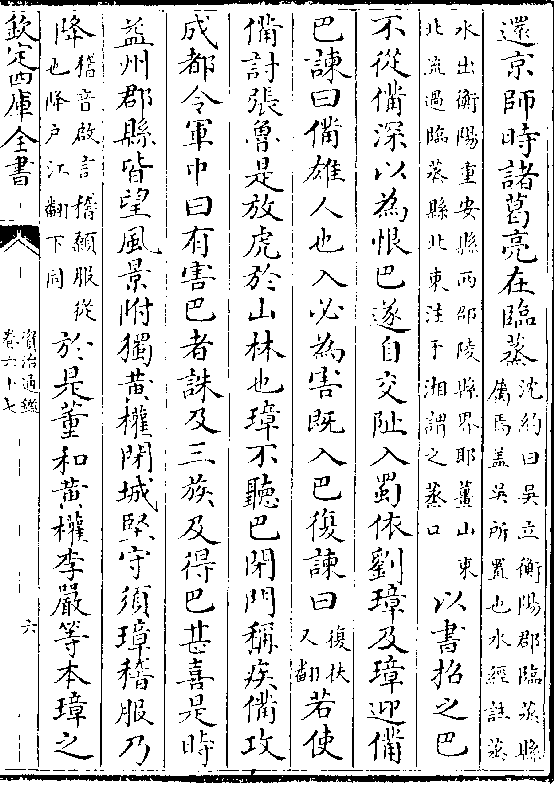 還京師時諸葛亮在臨蒸沈約曰吳立衡陽郡臨蒸縣屬焉盖吳所置也水經註蒸
水出衡陽重安縣西邵陵縣界耶薑山東北流過臨蒸縣北東注于湘謂之蒸口以書招之巴
不從備深以為恨巴遂自交阯入蜀依劉璋及璋迎備
巴諫曰備雄人也入必為害既入巴復諫曰復扶又翻若使
備討張魯是放虎於山林也璋不聽巴閉門稱疾備攻
成都令軍中曰有害巴者誅及三族及得巴甚喜是時
益州郡縣皆望風景附獨黄權閉城堅守須璋稽服乃
降稽音啟言稽顙服從也降户江翻下同於是董和黄權李嚴等本璋之
欽定四庫全書
資治通鑑
卷六十七
六